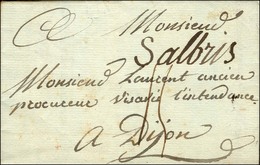 Monsieur
Salbris
Monsieur Laurent ancien
procureur l'intendance
A Dijon